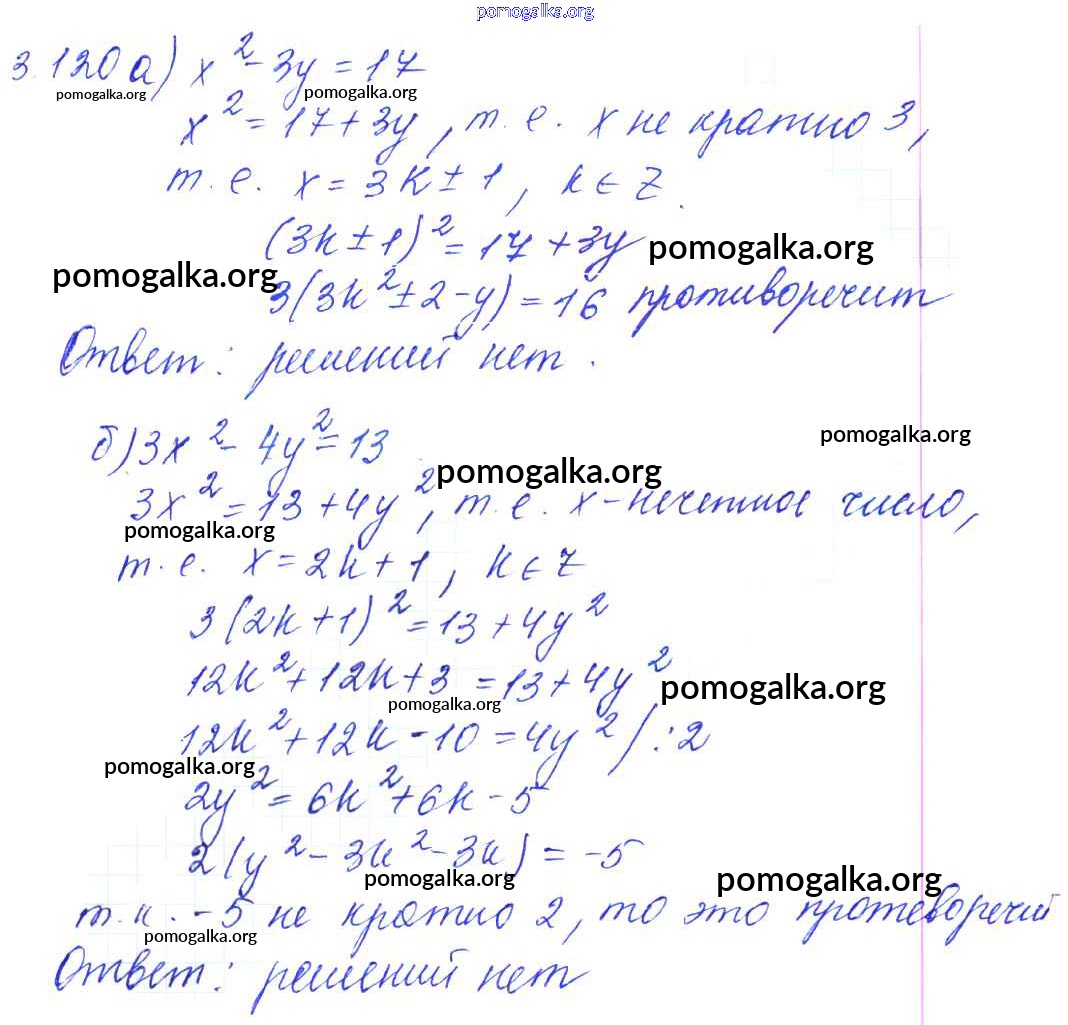 pomogalka.org
3.120 а) x² - 3y = 17
pomogalka.org pomogalka.org
x² = 17 + 3y, т. е. x не кратно 3,
т. е. x = 3k ± 1, k ∈ Z.
(3k ± 1)² = 17 + 3y pomogalka.org
pomogalka.org
3(3k² ± 2 - y) = 16 противоречит
Ответ: решений нет.
б) 3x² - 4y² = 13 pomogalka.org
pomogalka.org
3x² = 13 + 4y², т. е. x - нечетное число,
pomogalka.org
т. е. x = 2k + 1, k ∈ Z
3(2k + 1)² = 13 + 4y²
12k² + 12k + 3 = 13 + 4y² pomogalka.org
pomogalka.org
12k² + 12k - 10 = 4y² / :2
pomogalka.org
2y² = 6k² + 6k - 5
2(y² - 3k² - 3k) = -5
pomogalka.org pomogalka.org
т. к. -5 не кратно 2, то это противоречий
pomogalka.org
Ответ: решений нет